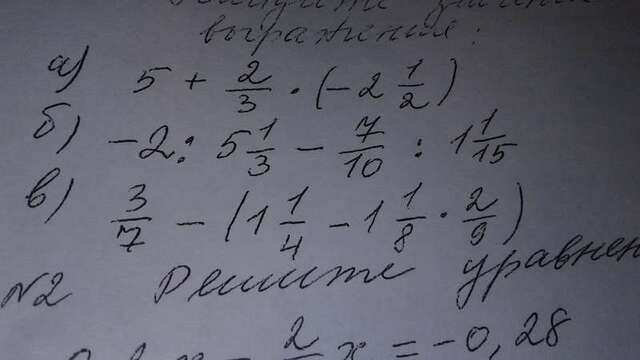 значение
выражения:
а) 5 + 2/3 · (-2 1/2)
б) -2 : 5 1/3 - 7/10 : 1 1/15
в) 3/7 - (1 1/4 - 1 1/8 · 2/9)
№2 Решите уравнен
x = -0,28